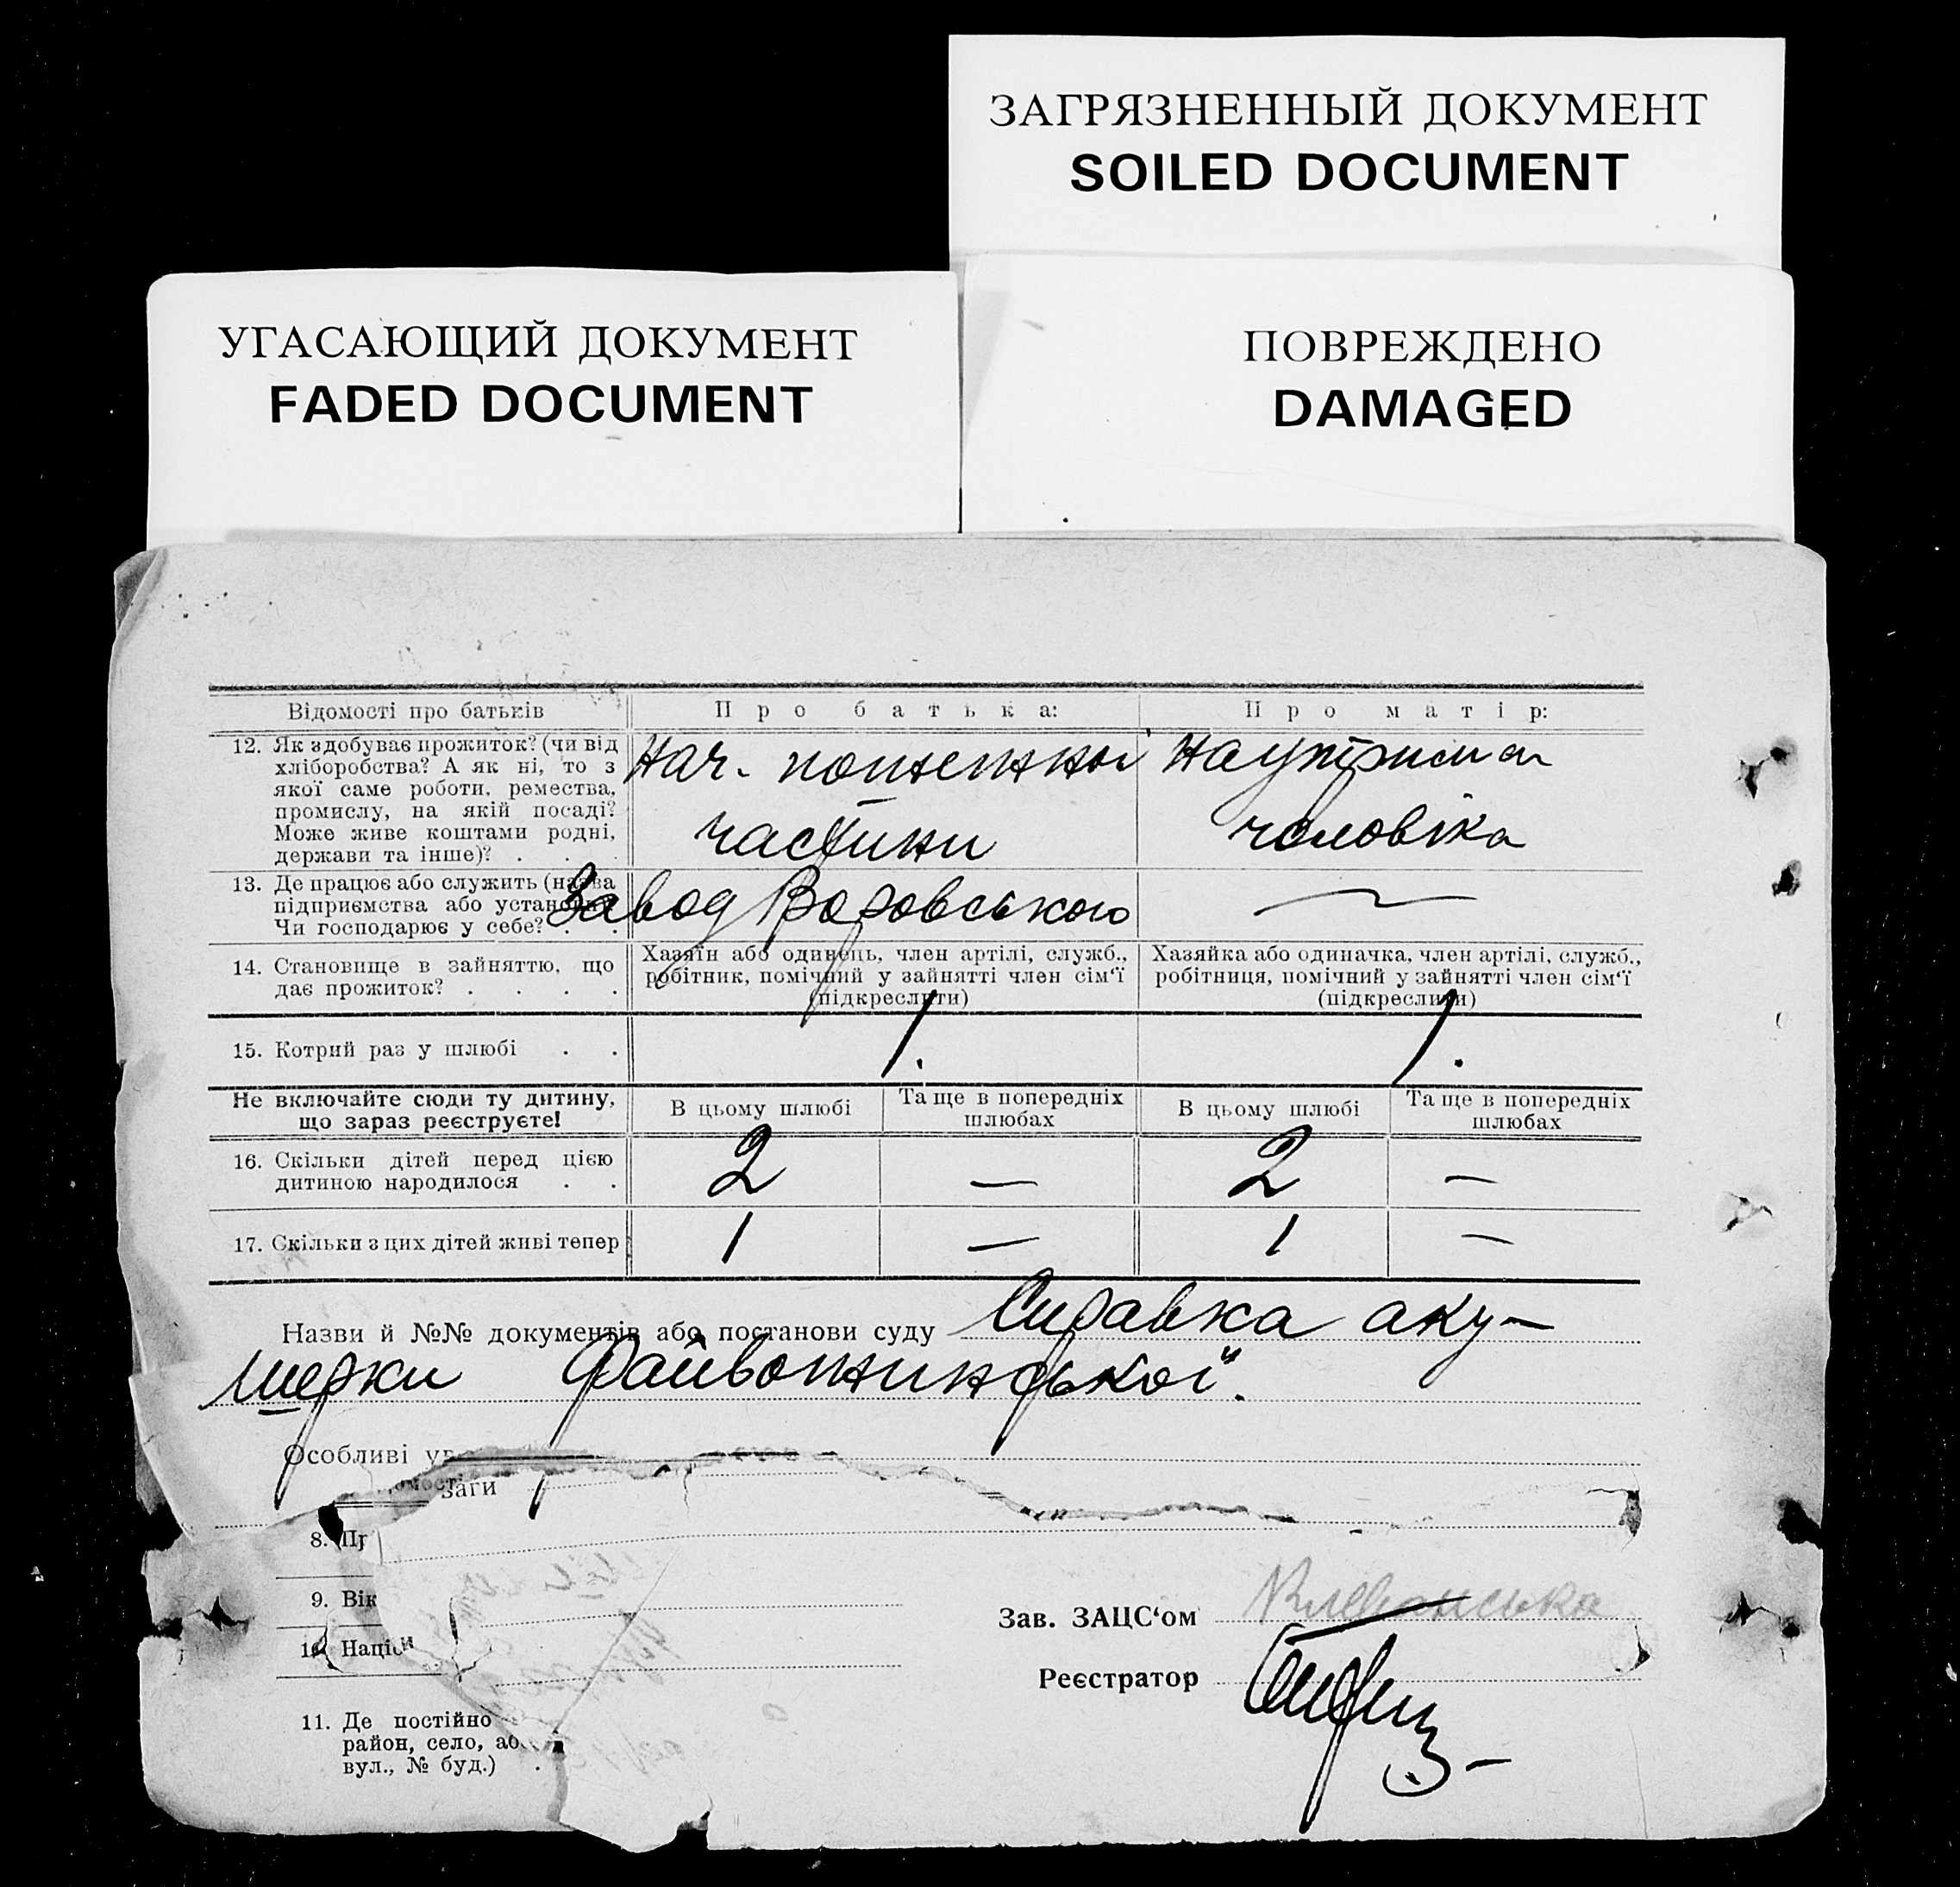 ЗАГРЯЗНЕННЫЙ ДОКУМЕНТ
SOILED DOCUMENT
УГАСАЮЩИЙ ДОКУМЕНТ
FADED DOCUMENT
ПОВРЕЖДЕНО
DAMAGED
Відомості про батьків
Про батька:
Про матір:
12. Як здобуває прожиток? (чи від
хліборобства? А як ні, то з
якої саме роботи, ремества,
промислу, на якій посаді?
Може живе коштами родні,
держави та інше)? . . .
Нач. пожежної
частини
На утрима
чоловіка
13. Де працює або служить (назва
підприємства або установи
Чи господарює у себе? . .
Завод Воровського
—
14. Становище в зайняттю, що
дає прожиток? . . . .
Хазяїн або одинець, член артілі, служб.,
робітник, помічний у зайнятті член сім‘ї
(підкреслити)
Хазяйка або одиначка, член артілі, служб.,
робітниця, помічний у зайнятті член сім‘ї
(підкреслити)
15. Котрий раз у шлюбі . .
1.
1.
Не включайте сюди ту дитину,
що зараз реєструєте!
В цьому шлюбі
Та ще в попередніх
шлюбах
В цьому шлюбі
Та ще в попередніх
шлюбах
16. Скільки дітей перед цією
дитиною народилося . .
2 — 2 —
17. Скільки з цих дітей живі тепер
1 — 1 —
Назви й №№ документів або постанови суду Справка аку-
шерки Файвожинської.
Особливі ув
заги
8. Пр
9. Вік
10. Націон
11. Де постійно
район, село, аб
вул., № буд.) .
Зав. ЗАЦС‘ом
Реєстратор